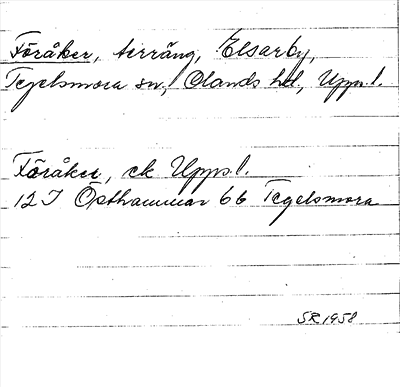 Föråker, terräng, Elsarby,
Tegelsmora sn, Olands hd, Upps. l.
Föråker, ek Upps. l.
12 I Östhammar 66 Tegelsmora
SR 1958